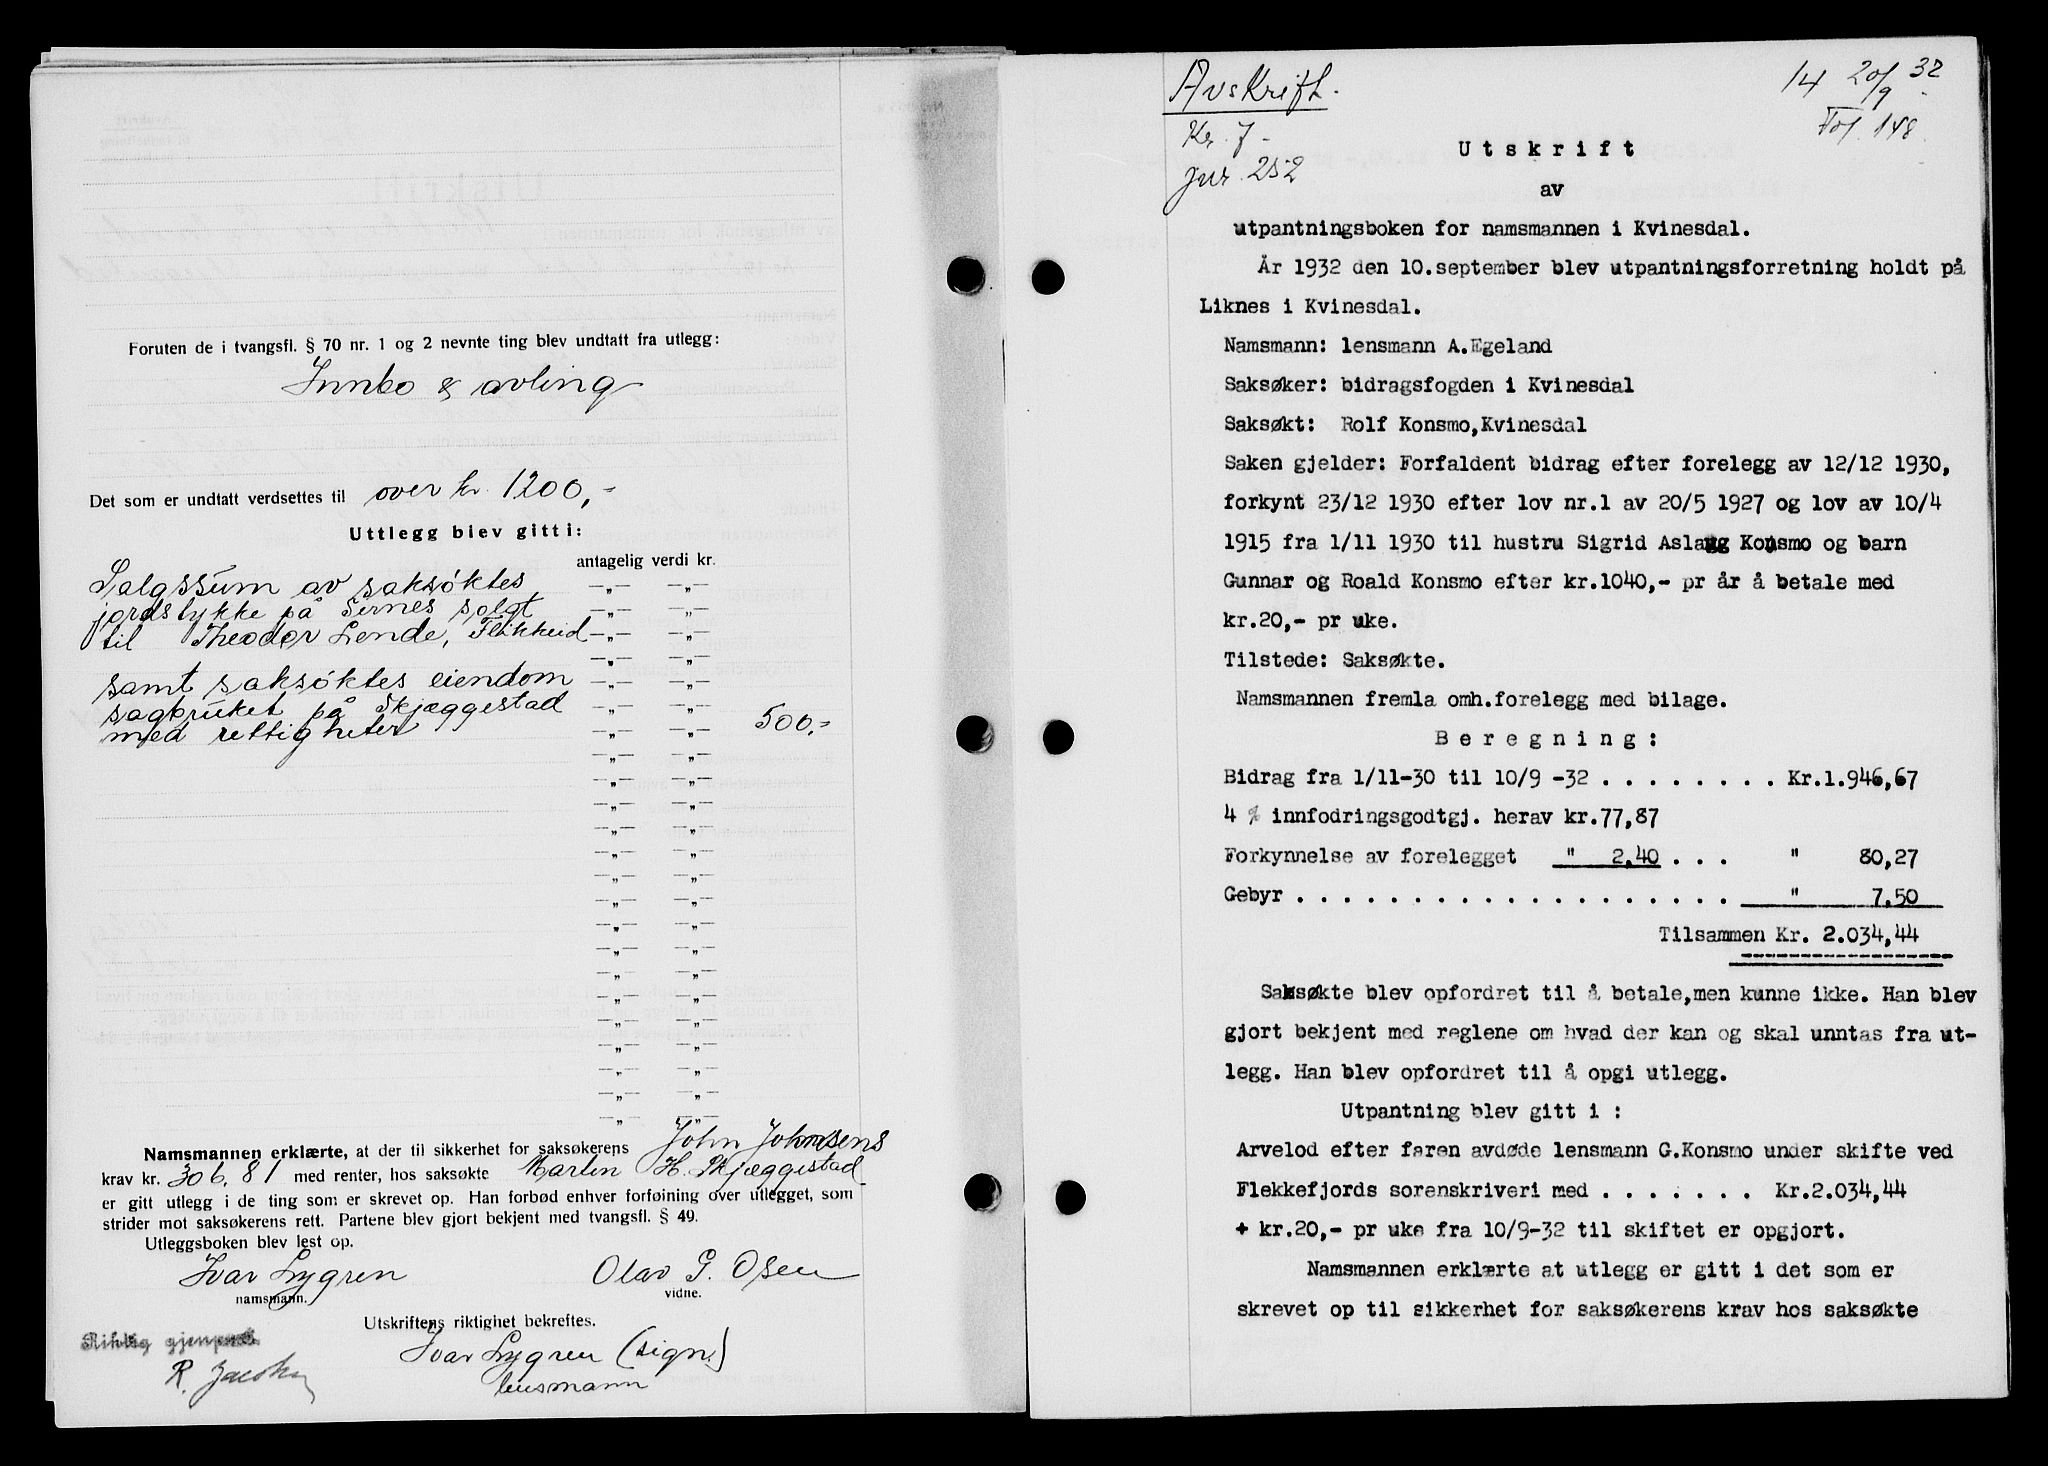 Foruten de i tvangsfl. § 70 nr. 1 og 2 nevnte ting blev undtatt fra utlegg:
Innbo & avling
Det som er undtatt verdsettes til over kr. 1200,-
Uttlegg blev gitt i:
antagelig verdi kr.
Salgssum av saksøktes
jordstykke på Sirnes solgt
til Theodor Lende, Flikkeid
samt saksøktes eiendom
sagbruket på Skjæggestad
med rettigheter 500,-
Namsmannen erklærte, at der til sikkerhet for saksøkerens John Johnsens
krav kr. 306,81 med renter, hos saksøkte Martin H. Skjæggestad
er gitt utlegg i de ting som er skrevet op. Han forbød enhver forføining over utlegget, som
strider mot saksøkerens rett. Partene blev gjort bekjent med tvangsfl. § 49.
Utleggsboken blev lest op.
Ivar Lygren Olav G. Osen
namsmann. vidne.
Utskriftens riktighet bekreftes.
Ivar Lygren (sign.)
lensmann
Riktig gjenpart
R.
Avskrift.
Kr. 7-
jnr. 252
14 20/9 32
Fol. 148
Utskrift
av
utpantningsboken for namsmannen i Kvinesdal.
År 1932 den 10.september blev utpantningsforretning holdt på
Liknes i Kvinesdal.
Namsmann: lensmann A.Egeland
Saksøker: bidragsfogden i Kvinesdal
Saksøkt: Rolf Konsmo,Kvinesdal
Saken gjelder: Forfaldent bidrag efter forelegg av 12/12 1930,
forkynt 23/12 1930 efter lov nr.1 av 20/5 1927 og lov av 10/4
1915 fra 1/11 1930 til hustru Sigrid Aslaug Konsmo og barn
Gunnar og Roald Konsmo efter kr.1040,- pr år å betale med
kr.20,- pr uke.
Tilstede: Saksøkte.
Namsmannen fremla omh.forelegg med bilage.
Beregning:
Bidrag fra 1/11-30 til 10/9 -32 . . . . . . . . Kr.1.946,67
4 % innfodringsgodtgj. herav kr.77,87
Forkynnelse av forelegget " 2,40 . . . " 80,27
Gebyr . . . . . . . . . . . . . . . . . . . " 7,50
Tilsammen Kr. 2.034,44
Saksøkte blev opfordret til å betale,men kunne ikke. Han blev
gjort bekjent med reglene om hvad der kan og skal unntas fra ut-
legg. Han blev opfordret til å opgi utlegg.
Utpantning blev gitt i :
Arvelod efter faren avdøde lensmann G.Konsmo under skifte ved
Flekkefjords sorenskriveri med . . . . . . . Kr.2.034,44
+ kr.20,- pr uke fra 10/9-32 til skiftet er opgjort.
Namsmannen erklærte at utlegg er gitt i det som er
skrevet op til sikkerhet for saksøkerens krav hos saksøkte